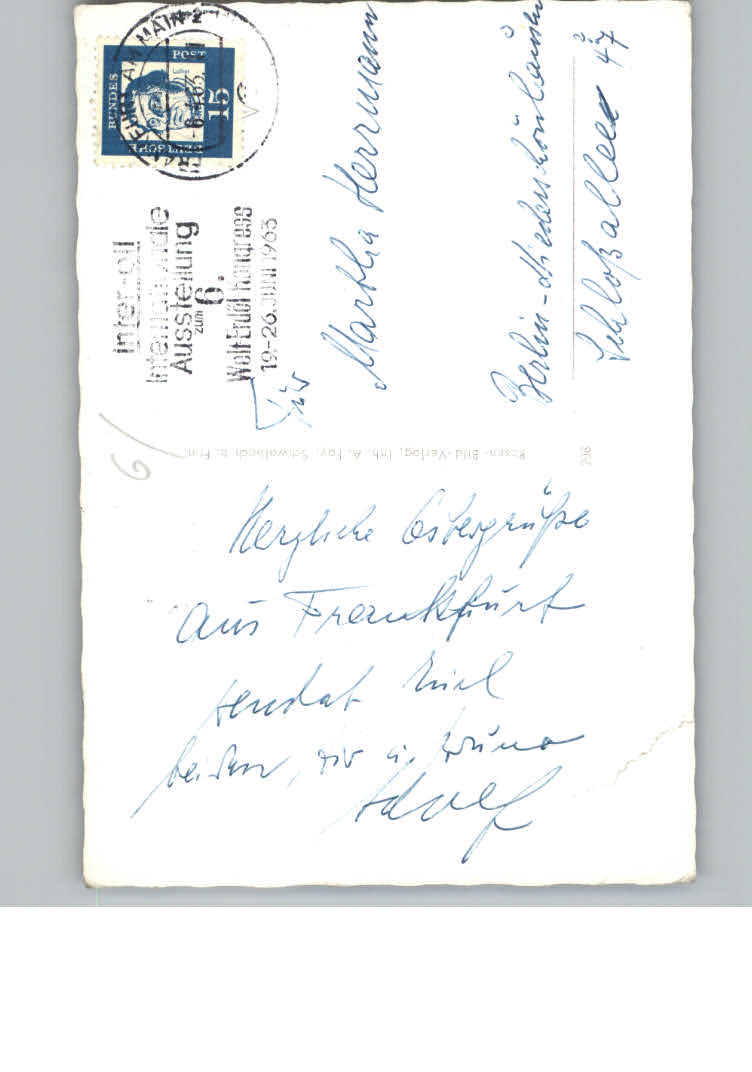 Herzliche Ostergrüße
aus Frankfurt
sendet Euch
beiden, dir u. Bruno
Adolf
Für
Martha Herrmann
Berlin-Niederschönhausen
Schloßallee 47
DEUTSCHE
BUNDES
POST
Luther
15
AM MAIN 2
inter-oil
Internationale
Ausstellung
zum 6.
Welt-Erdöl Kongress
19.-26. JUNI 1963
Rosen-Bild-Verlag, Inh. A.
208
6/